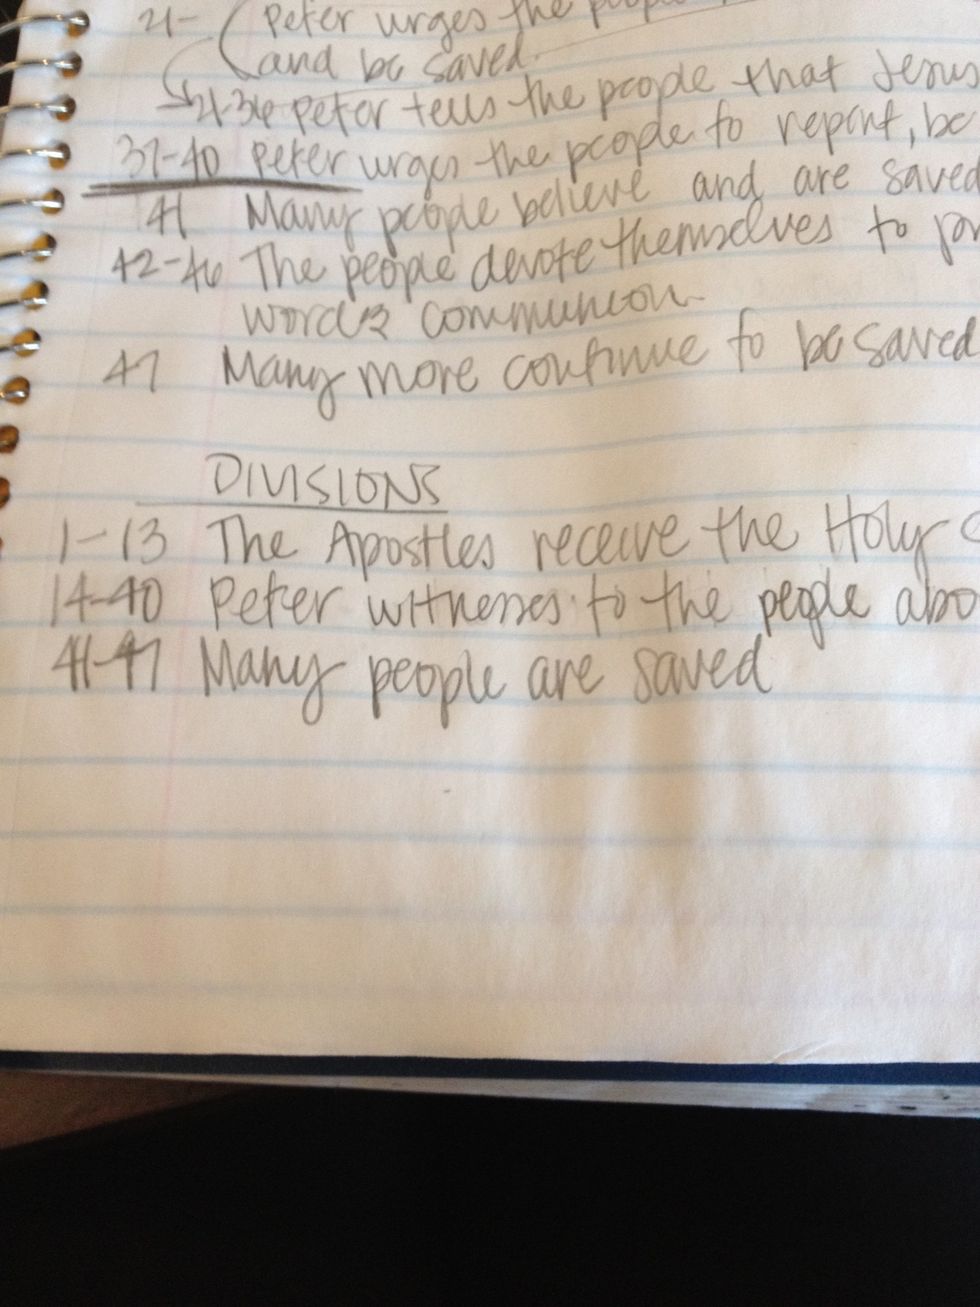 21- Peter urges the people
and be saved.
21-36 Peter tells the people that Jesus
37-40 Peter urges the people to repent, be
41 Many people believe and are saved
42-46 The people devote themselves to
word & communion
47 Many more continue to be saved
DIVISIONS
1-13 The Apostles receive the Holy
14-40 Peter witnesses to the people abo
41-47 Many people are saved